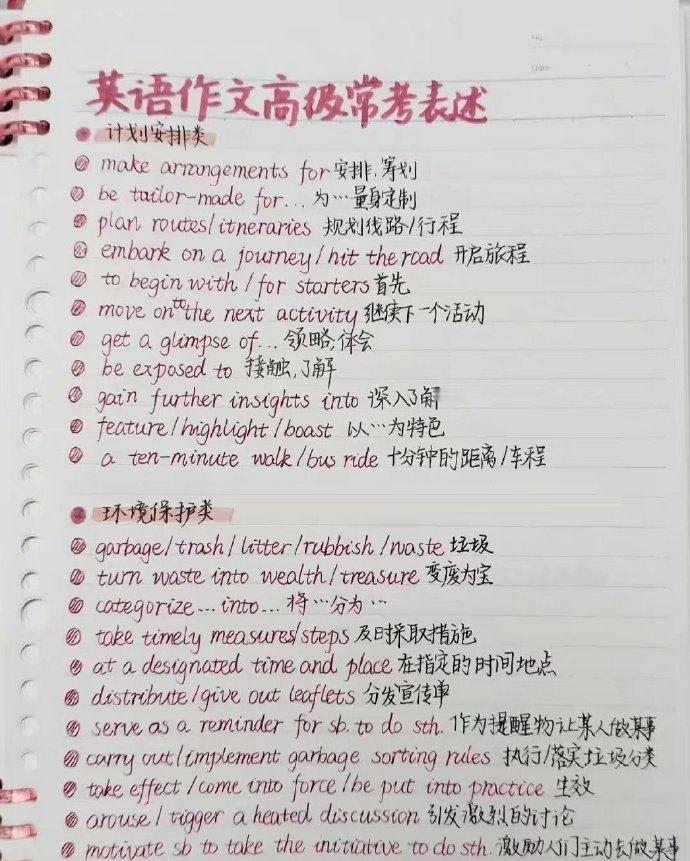 英语作文高级常考表述
计划安排类
make arrangements for 安排,筹划
be tailor-made for... 为…量身定制
plan routes/itneraries 规划线路/行程
embark on a journey/hit the road 开启旅程
to begin with/for starters 首先
move on to the next activity 继续下一个活动
get a glimpse of... 领略,体会
be exposed to 接触,了解
gain further insights into 深入了解
feature/highlight/boast 以…为特色
a ten-minute walk/bus ride 十分钟的距离/车程
环境保护类
garbage/trash/litter/rubbish/waste 垃圾
turn waste into wealth/treasure 变废为宝
categorize...into... 将…分为…
take timely measures/steps 及时采取措施
at a designated time and place 在指定的时间地点
distribute/give out leaflets 分发宣传单
serve as a reminder for sb. to do sth. 作为提醒物让某人做某事
carry out/implement garbage sorting rules 执行/落实垃圾分类
take effect/come into force/be put into practice 生效
arouse/tigger a heated discussion 引发激烈的讨论
motivate sb to take the initiative to do sth. 激励人们主动去做某事